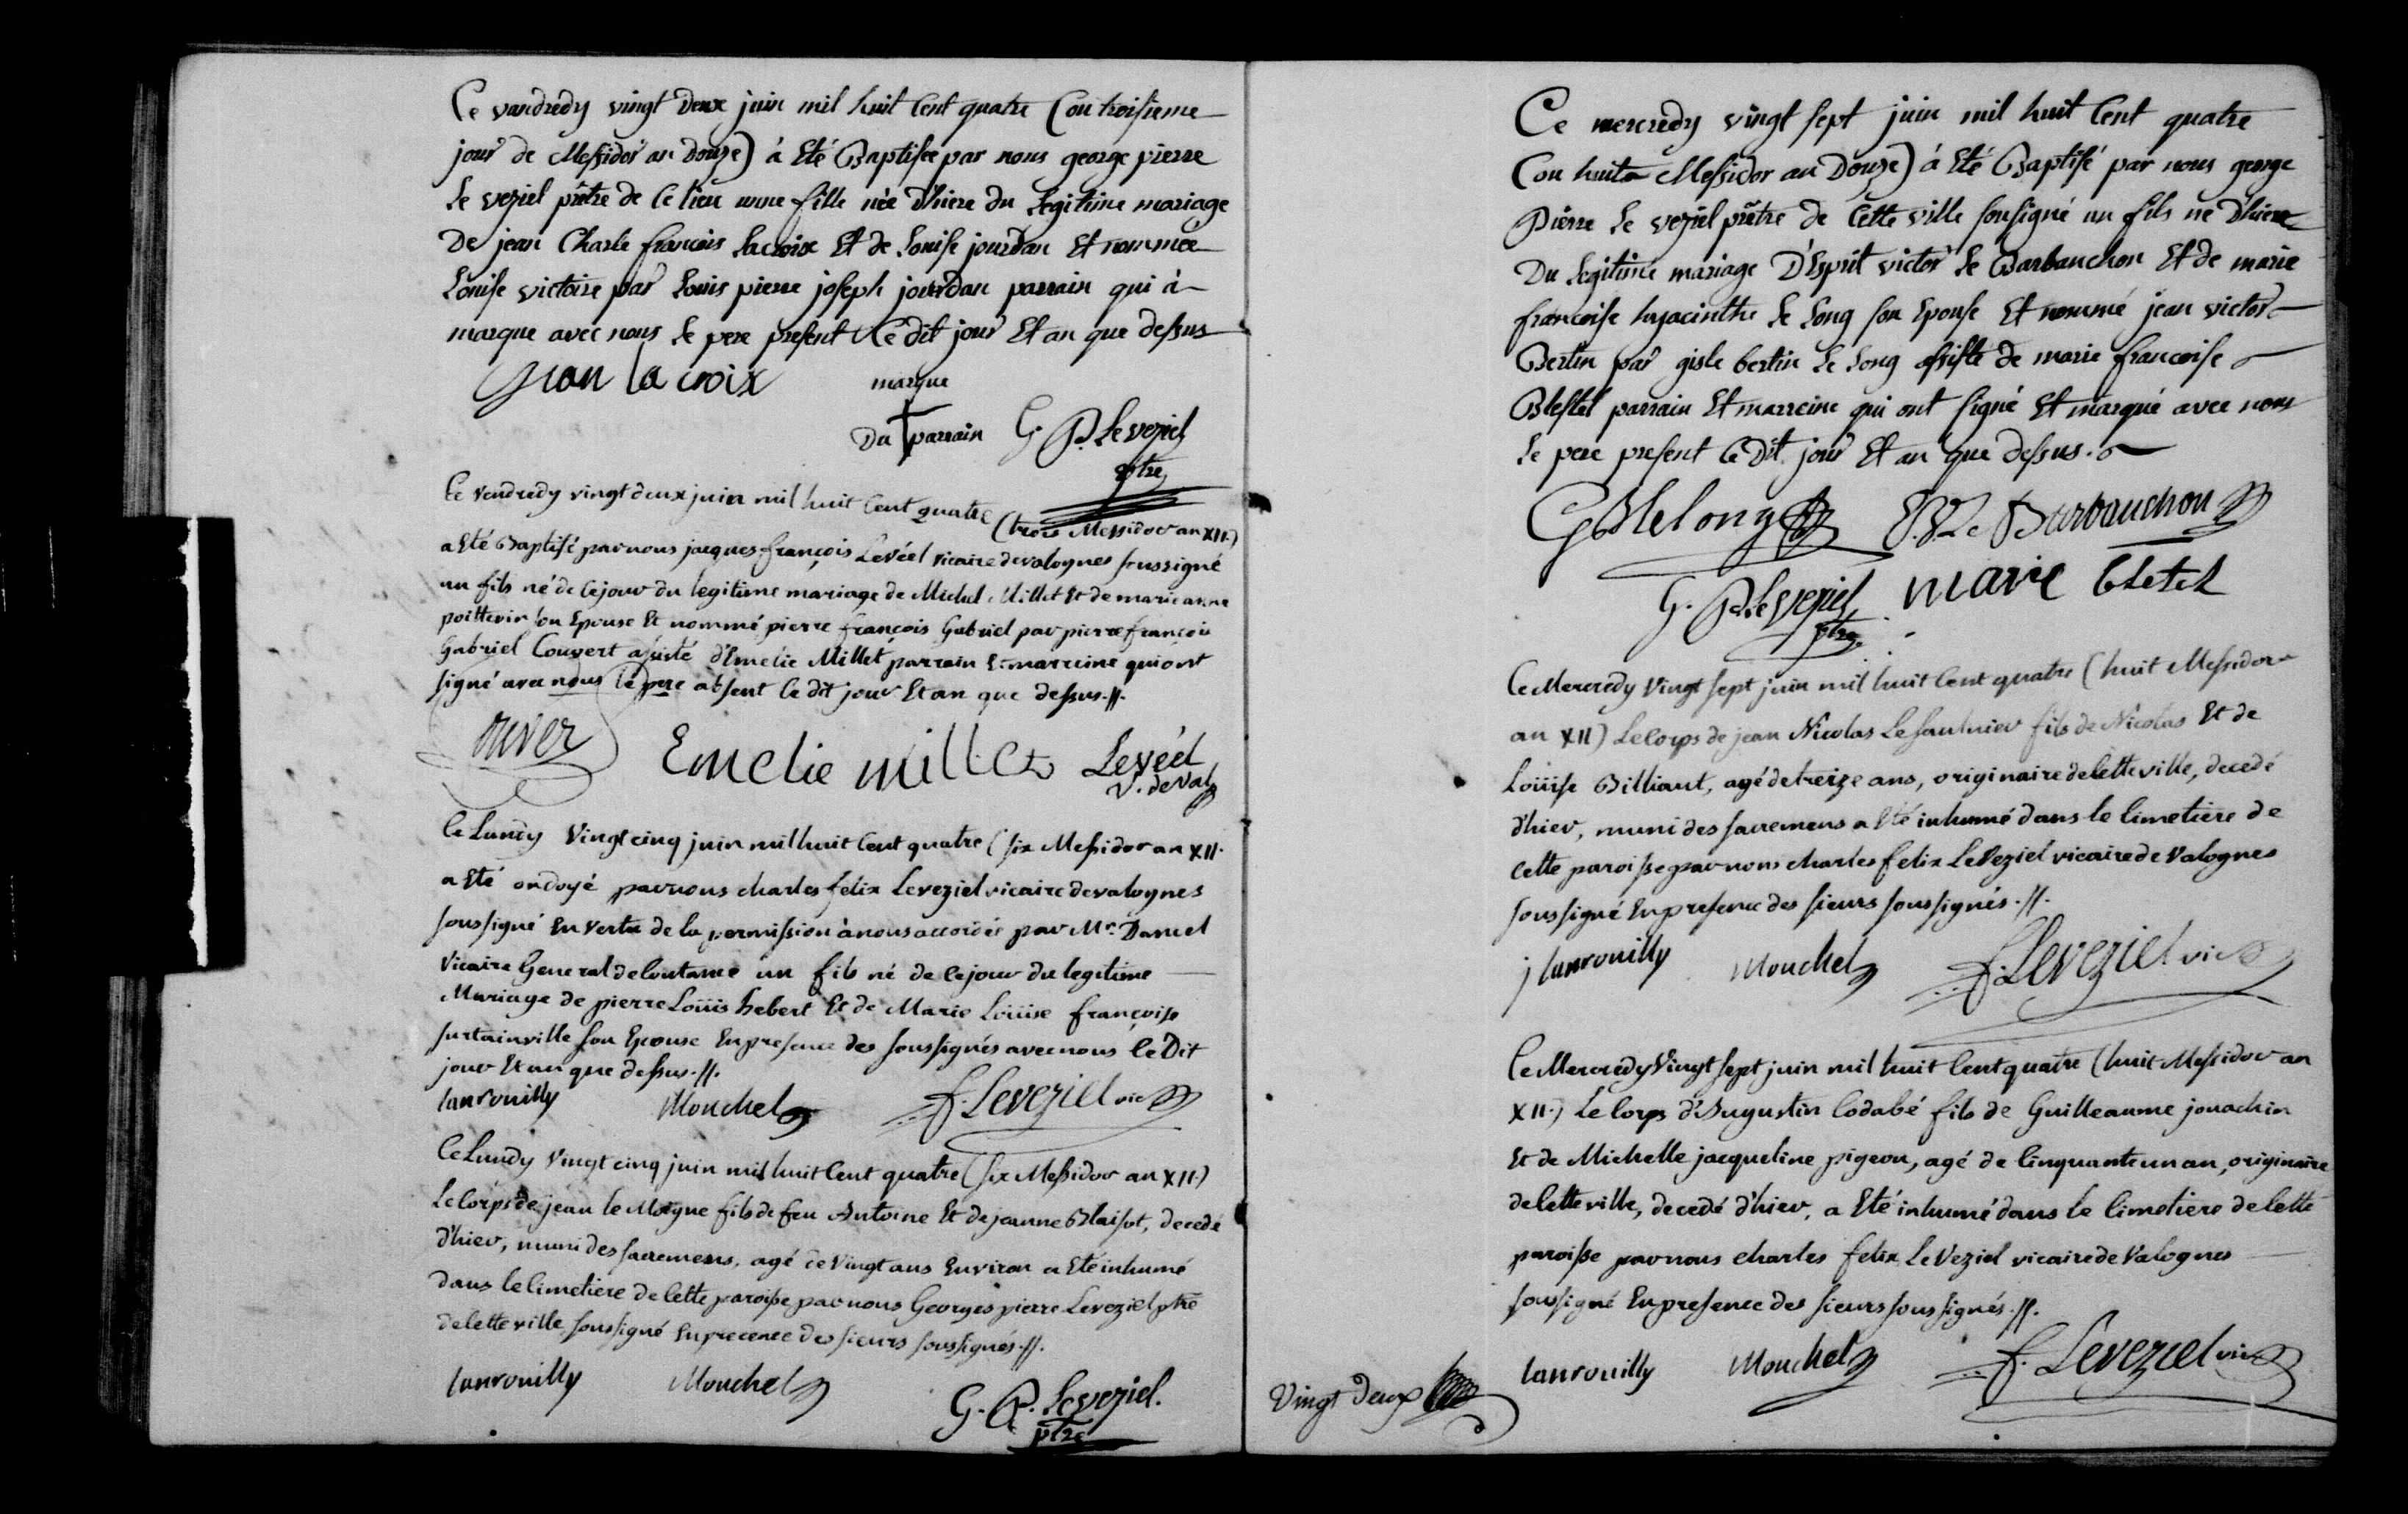 Ce vandredy vingt deux juin mil huit Cent quatre (ou troisieme
jour de Messidor an Douze) à Eté Baptisée par nous george pierre
Le veziel prêtre de Ce lieu unne fille née D'hiere du Legitime mariage
De jean Charle francois Lacroix Et de Louise jourdan Et nommée
Louise victoire par Louis pierre joseph jourdan parrain qui à
marque avec nous le pere present Ce dit jour Et an que dessus
jean la croix marque
Du parrain G. P. Le veziel
ptre
Ce vendredy vingt deux juin mil huit Cent quatre (trois Messidor an XII.)
a Eté Baptisé par nous jacques françois Levéel vicaire de valognes soussigné
un fils né de Ce jour du legitime mariage de Michel Millet Et de marie anne
poittevin son Epouse Et nommé pierre françois Gabriel par pierre françois
Gabriel Couvert assisté d'Emelie Millet parrain Et marreine qui ont
signé avec nous le pere absent Ce dit jour Et an que dessus.//.
Emelie millet Levéel
V. de Val
Ce Lundy Vingt cinq juin mil huit Cent quatre (six Messidor an XII.
a Eté ondoyé par nous charles felix Leveziel vicaire de valognes
soussigné En vertu de la permission à nous accordée par Mr. Daniel
Vicaire General de Coutance un fils né de Ce jour du legitime
Mariage de pierre Loüis hebert Et de Marie Loüise françoise
surtainville son Epouse En presence des soussignés avec nous le Dit
jour Et an que dessus.//.
lanrouilly Mouchel f. Leveziel vic
Ce Lundy Vingt cinq juin mil huit Cent quatre (six Messidor an XII.)
Le Corps de jean le Moigne fils de feu Antoine Et de jeanne Blaisot, decedé
d'hier, muni des sacremens, agé de Vingt ans Environ a Eté inhumé
dans le Cimetiere de Cette paroisse par nous Georges pierre Leveziel ptre
de Cette ville soussigné En precence des sieurs soussignés.//.
lanrouilly Mouchel
G. P. Leveziel.
ptre
Ce mercredy vingt sept juin mil huit Cent quatre
(ou huit Messidor an Douze) à Eté Baptisé par nous george
Pierre Le veziel prêtre de Cette ville sousigné un fils né D'hiere
Du Legitime mariage D'Esprit victor Le Barbanchon Et de marie
francoise hyacinthe Le Long son Epouse Et nommé jean victor
Bertin par gisle bertin Le Long assisté de marie francoise
Blestel parrain Et marreine qui ont signé Et marqué avec nous
Le pere present Ce Dit jour Et an que dessus.
GB lelong E. V. Le Barbanchon
G. P. Le veziel marie bletel
ptre
Ce Mercredy Vingt sept juin mil huit Cent quatre (huit Messidor
an XII) Le Corps de jean Nicolas Lesaulnier fils de Nicolas Et de
Loüise Billiant, agé de treize ans, originaire de Cette ville, decedé
d'hier, muni des sacremens a Eté inhumé dans le Cimetiere de
Cette paroisse par nous charles felix LeVeziel vicaire de Valognes
soussigné En presence des sieurs soussignés.//.
j lanrouilly Mouchel f. Leveziel vic
Ce Mercredy Vingt sept juin mil huit Cent quatre (huit Messidor an
XII.) Le Corps d'Augustin Codabé fils de Guilleaume jouachin
Et de Michelle jacqueline pigeon, agé de Cinquante un an, originaire
de Cette ville, decedé d'hier, a Eté inhumé dans le Cimetiere de Cette
paroisse par nous charles felix LeVeziel vicaire de Valognes
soussigné En presence des sieurs soussignés.//.
lanrouilly Mouchel f. Leveziel vic
Vingt Deux